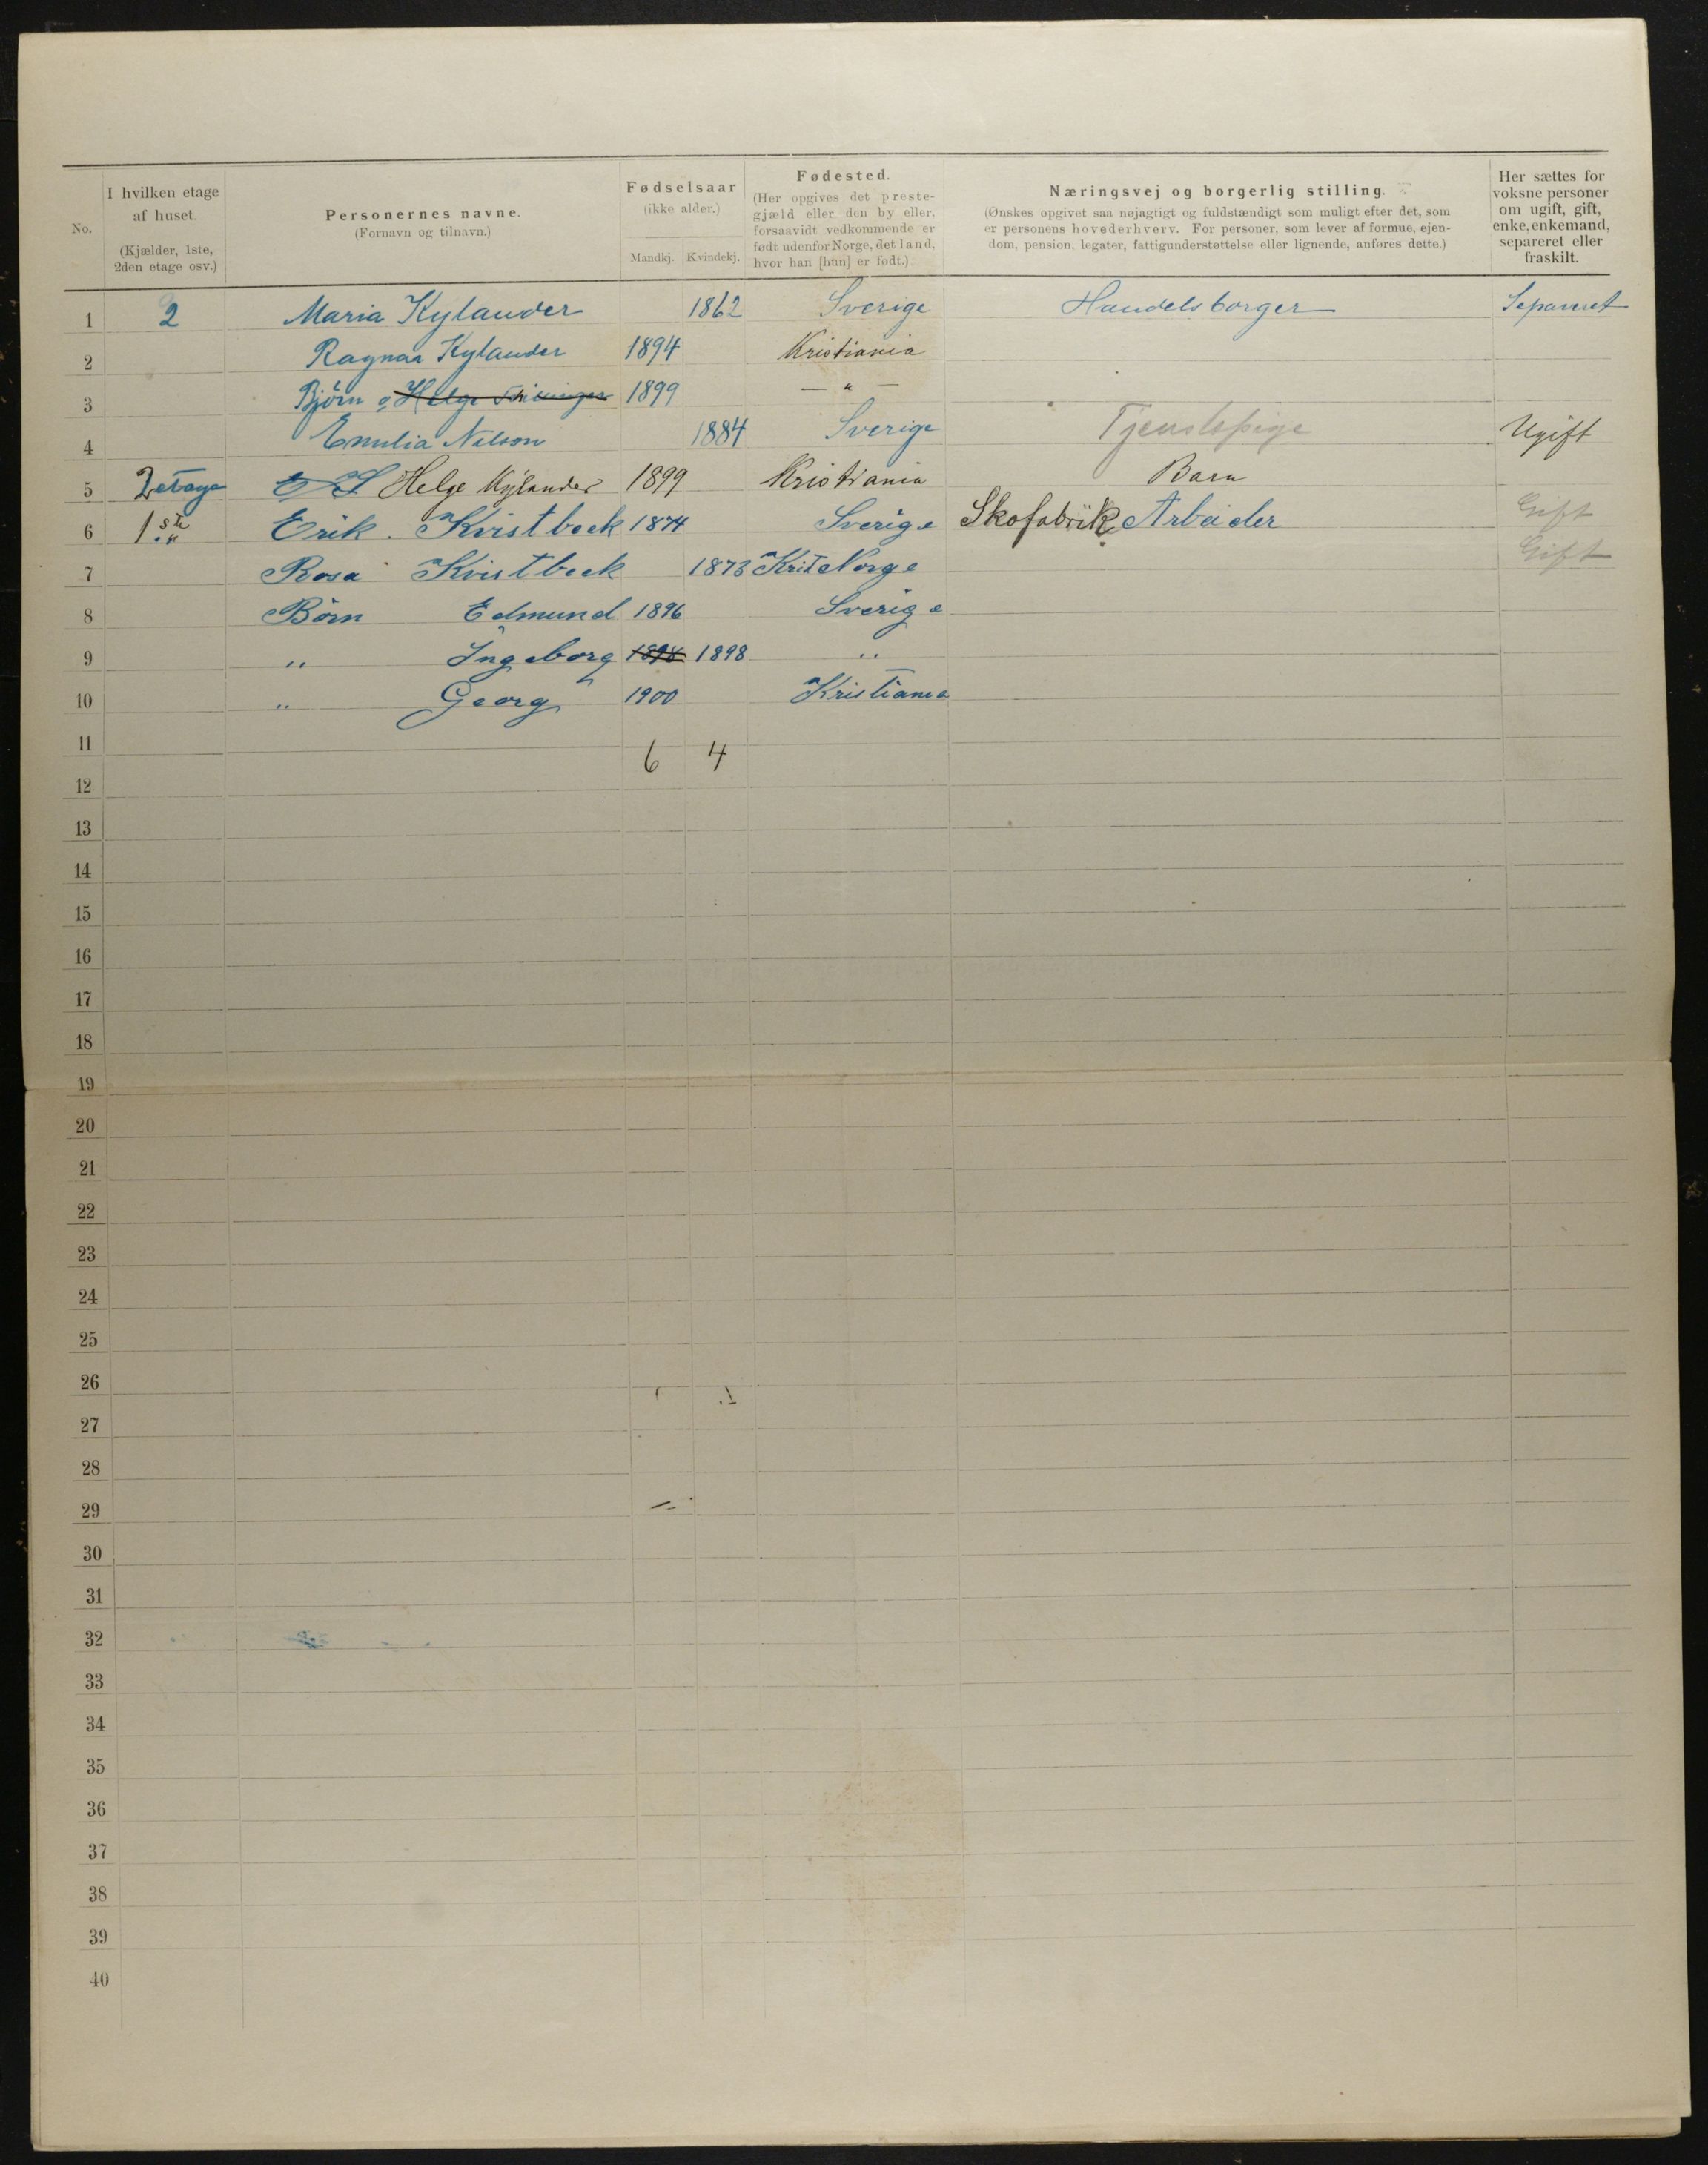 No.
I hvilken etage
af huset.
(Kjælder, 1ste,
2den etage osv.)
Personernes navne.
(Fornavn og tilnavn.)
Fødselsaar
(ikke alder.)
Mandkj. Kvindekj.
Fødested.
(Her opgives det preste-
gjæld eller den by eller,
forsaavidt vedkommende er
født udenfor Norge, det land,
hvor han [hun] er født.)
Næringsvej og borgerlig stilling.
(Ønskes opgivet saa nøjagtigt og fuldstændigt som muligt efter det, som
er personens hovederhverv. For personer, som lever af formue, ejen-
dom, pension, legater, fattigunderstøttelse eller lignende, anføres dette.)
Her sættes for
voksne personer
om ugift, gift,
enke, enkemand,
separeret eller
fraskilt.
1 2 Maria Kylander 1862 Sverige Handelsborger Separeret
2 Ragnar Kylander 1894 Kristiania
3 Bjørn o Helge 1899 — " —
4 Emilia Nilson 1884 Sverige Tjenestepige Ugift
5 2 etage Helge Kylander 1899 Kristiania Barn
6 1ste " Erik Kvistbeck 1874 Sverige Skofabrik Arbeider Gift
7 Rosa Kvistbeck 1873 Krist Norge Gift
8 Børn Edmund 1896 Sverige
9 " Ingeborg 1898 1898 "
10 " Georg 1900 Kristiania
11 6 4
12
13
14
15
16
17
18
19
20
21
22
23
24
25
26
27
28
29
30
31
32
33
34
35
36
37
38
39
40